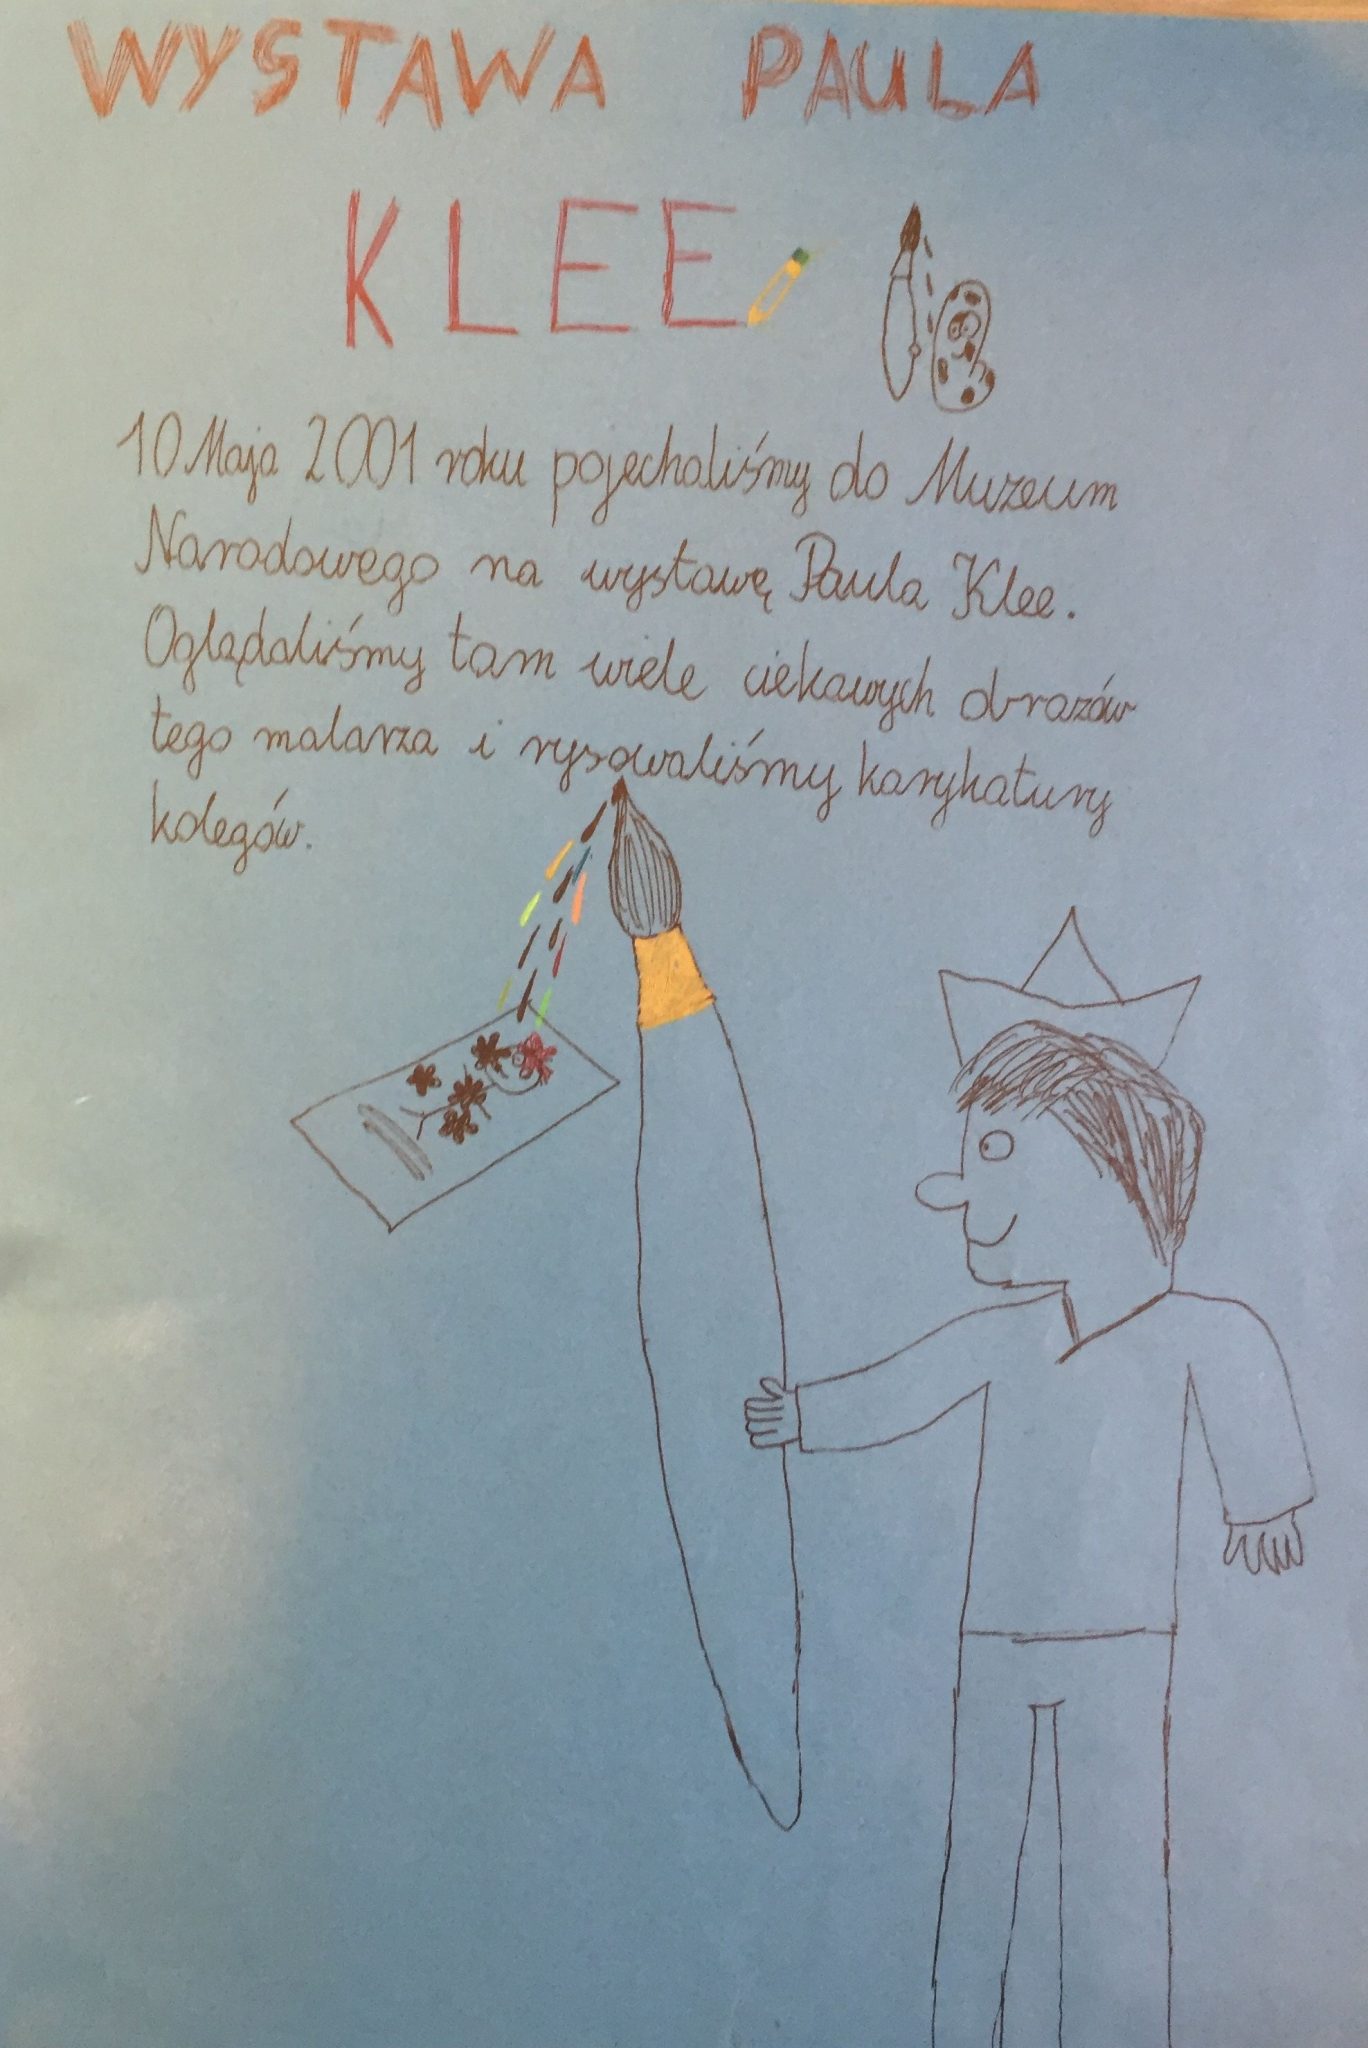 WYSTAWA PAULA
KLEE
10 Maja 2001 roku pojechaliśmy do Muzeum
Narodowego na wystawę Paula Klee.
Oglądaliśmy tam wiele ciekawych obrazów
tego malarza i rysowaliśmy karykatury
kolegów.